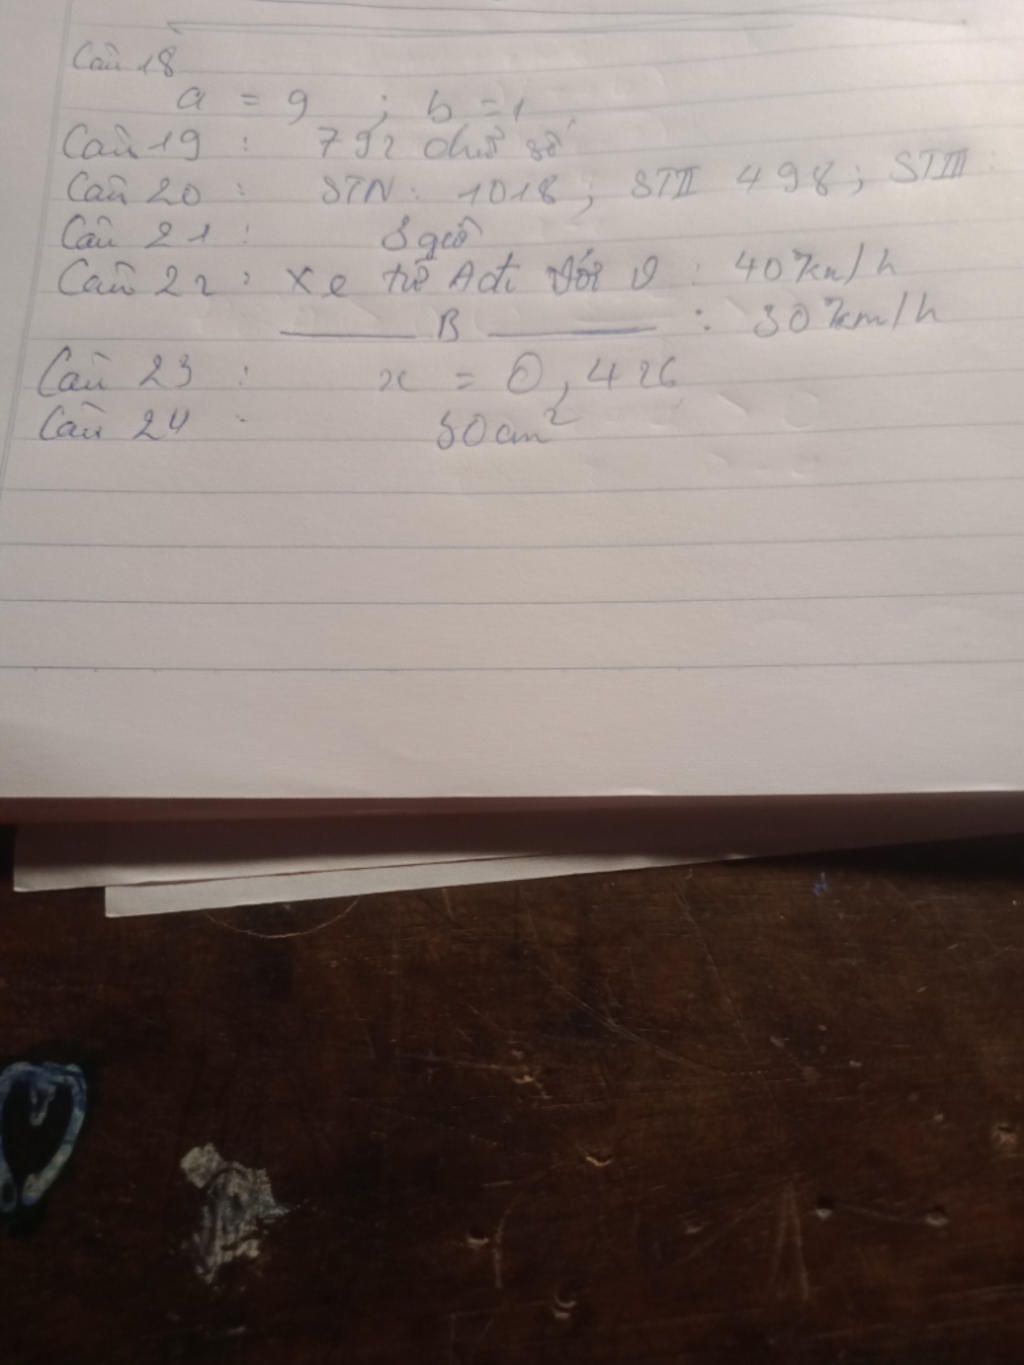 Câu 18
a = 9 ; b = 1
Câu 19 : 792 chữ số
Câu 20 : STN : 1018 ; STII 498 ; STIII :
Câu 21 : 3 giờ
Câu 22 : Xe từ A đi với v : 40 km/h
B : 30 km/h
Câu 23 : x = 0,426
Câu 24 : 30 cm²